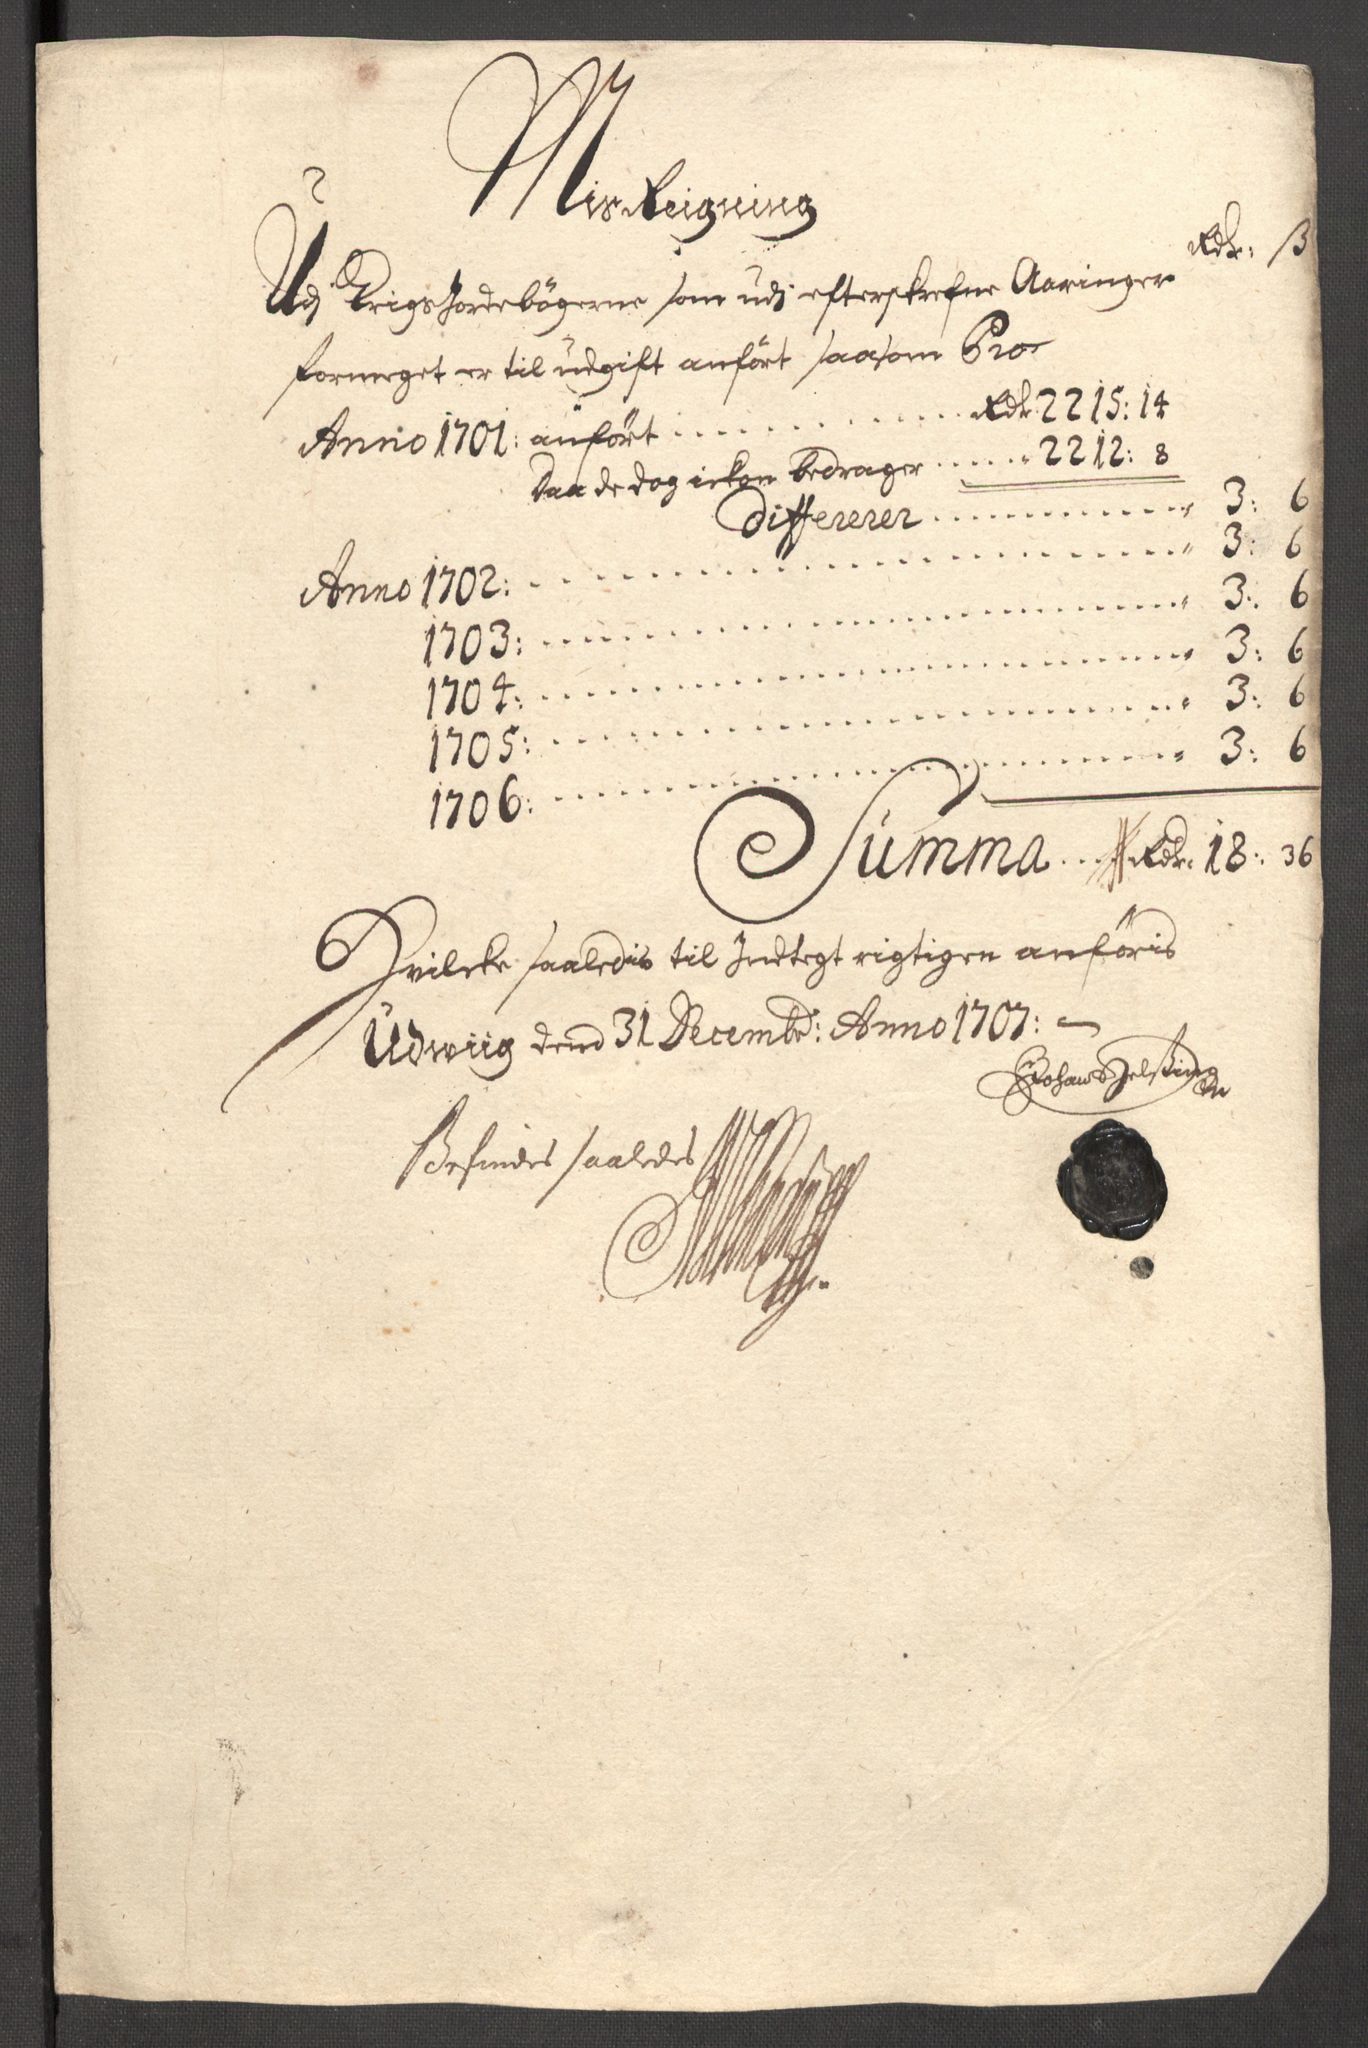 Misreigning
Rdr: ß
Udj Krigs Jordebögerne som udj efterskrefne Aaringer
formeget er til udgift anfört saasom Pro
Anno 1701: anfört ........... Rdr 2215: 14
Daa de dog icken bedrager ...... 2212: 8
differerer ............ 3: 6
Anno 1702: ............ 3: 6
1703: ............ 3: 6
1704: ............ 3: 6
1705: ............ 3: 6
1706: ............ 3: 6
Summa ... Rdr: 18: 36
Hvilcke saaledis til Indtegt rigtigen anföris
Udwiig dend 31 Decembr: Anno 1707:
Befindes saaledes